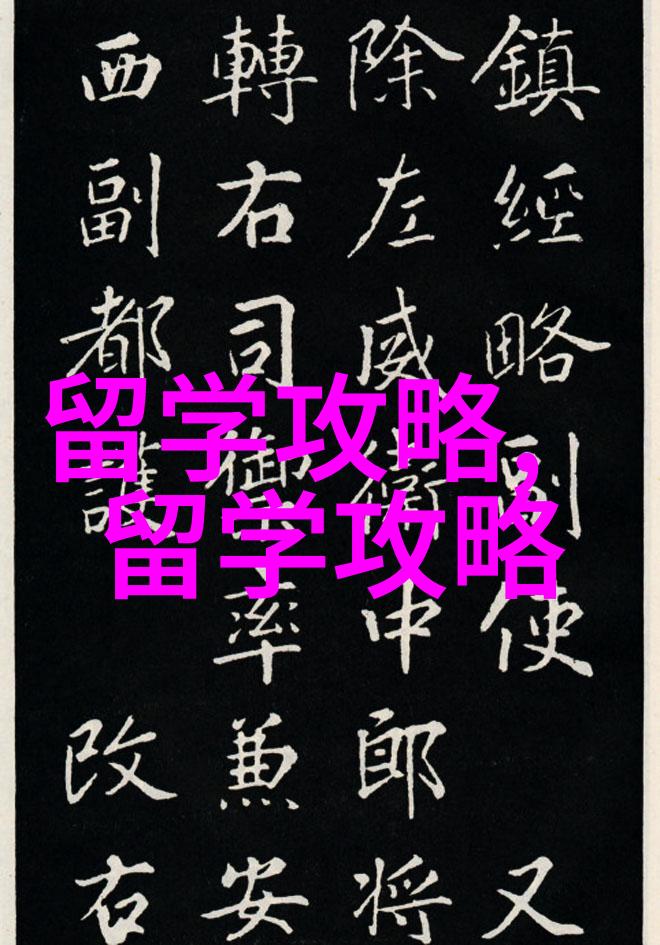 鎮經略副使 又
除左威衛中郎将
轉右司御率兼安
西副都護 改右
留学攻略,
留学攻略